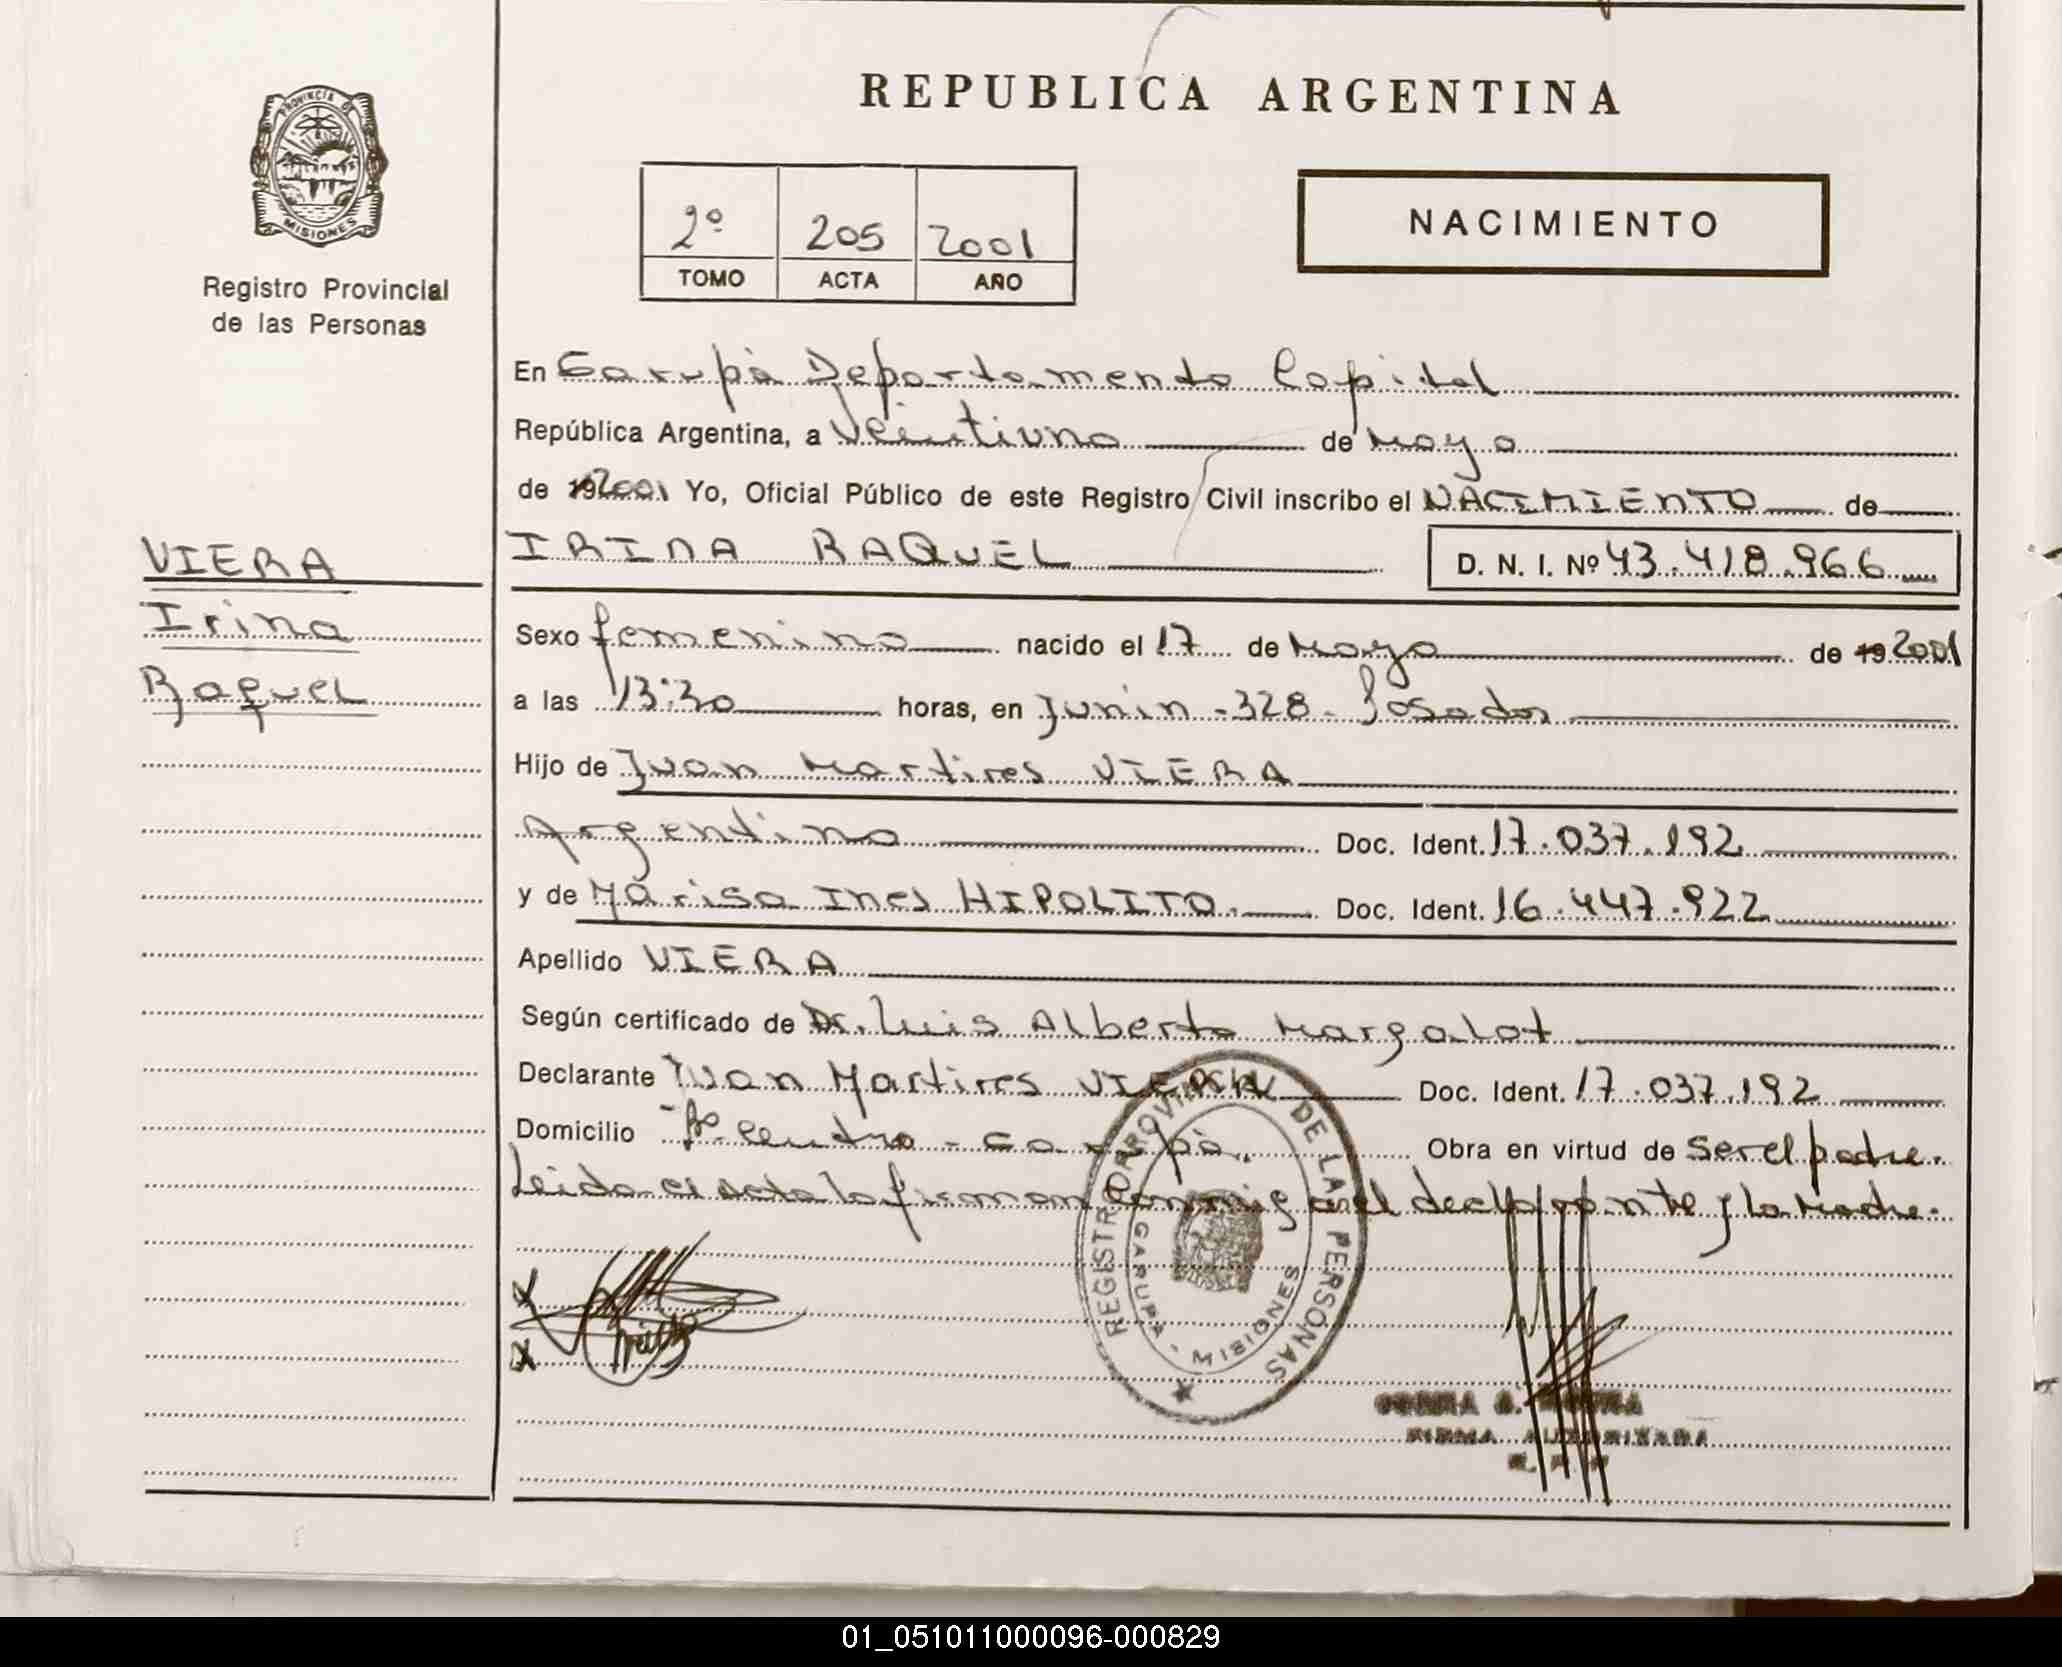 REPUBLICA ARGENTINA
PROVINCIA DE
MISIONES
Registro Provincial
de las Personas
2º 205 2001
TOMO ACTA AÑO
NACIMIENTO
En Garupà Departamento Capital
República Argentina, a Veintiuno de Mayo
de 192001 Yo, Oficial Público de este Registro Civil inscribo el NACIMIENTO de
VIERA
Irina
Raquel
IRINA RAQUEL D. N. I. Nº 43.418.966
Sexo femenino nacido el 17 de Mayo de 19 2001
a las 13:30 horas, en Junin - 328 - Posadas
Hijo de Juan Martires VIERA
Argentino Doc. Ident. 17.037.192
y de Marisa Ines HIPOLITO. Doc. Ident. 16.447.922
Apellido VIERA
Según certificado de Dr. Luis Alberto Margalot
Declarante Juan Martires VIERA Doc. Ident. 17.037.192
Domicilio Bº Centro - Garupà. Obra en virtud de ser el padre.
Leida el acta la firman conmigo el declarante y la madre.
REGISTRO PROVINCIAL DE LAS PERSONAS
GARUPA - MISIONES
FIRMA AUTORIZADA
01_051011000096-000829